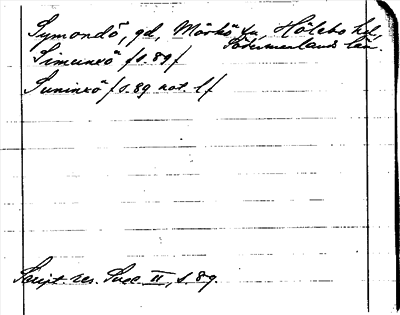 Symondö, gd, Mörkö sn, Hölebo hd,
Södermanlands län.
Simunxö /s. 89/
Suninxö /s. 89 not. 1/
Script. rer. Suec. II, s. 89.